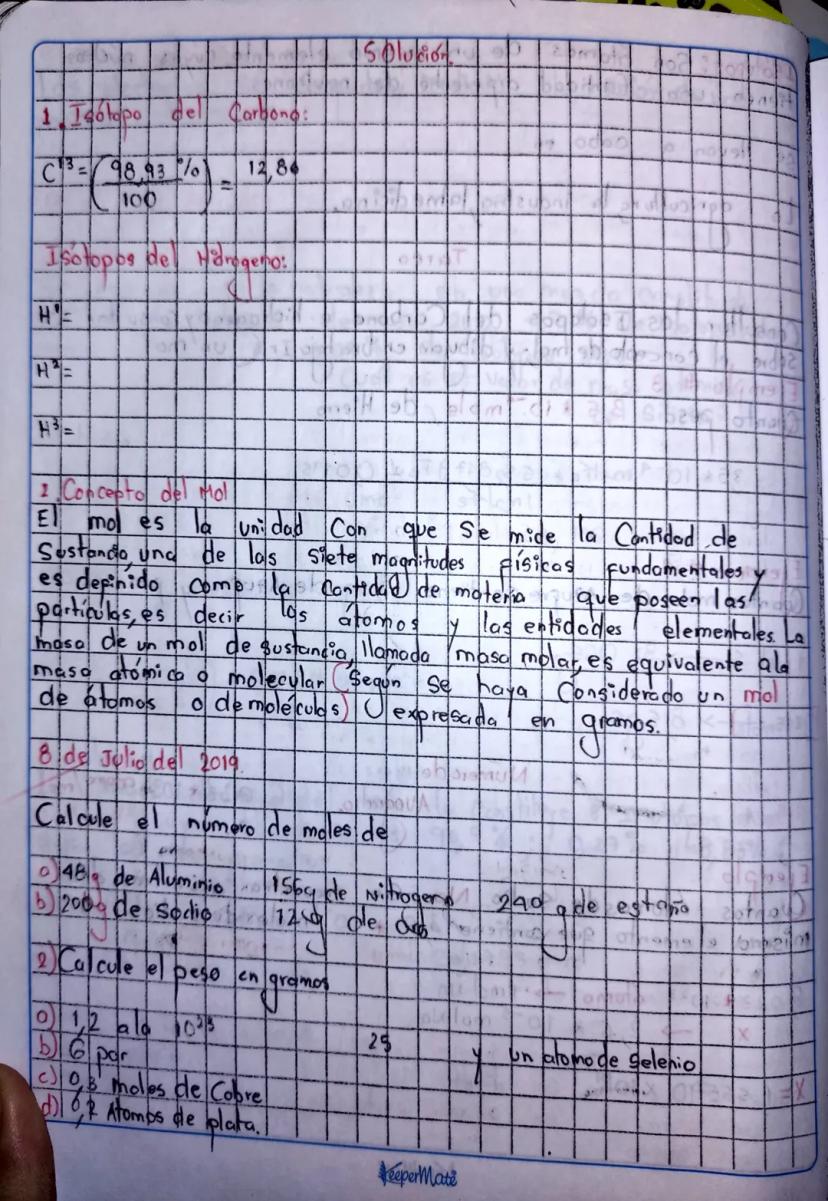 Solución.
1. Isótopo del Carbono:
C¹³ = (98,93 % / 100) = 12,86
Isótopos del Hidrogeno:
H¹ =
H² =
H³ =
1. Concepto del Mol
El mol es la unidad con que se mide la Cantidad de
Sustancia, una de las siete magnitudes físicas fundamentales y
es definido como la cantidad de materia que poseen las
partículas, es decir los átomos y las entidades elementales. La
masa de un mol de sustancia, llamada masa molar, es equivalente ala
masa atómica o molecular (según se haya Considerado un mol
de átomos o de moléculas) expresada en gramos.
8 de Julio del 2019.
Calcule el número de moles de
a) 48g de Aluminio 156g de Nitrogeno 240 g de estaño
b) 200g de sodio de
2) Calcule el peso en gramos
a) 1,2 ala 10²³
b) 6 por 25 y un atomo de selenio
c) 0,3 moles de Cobre
d) 6,2 Atomos de plata.
KeeperMate